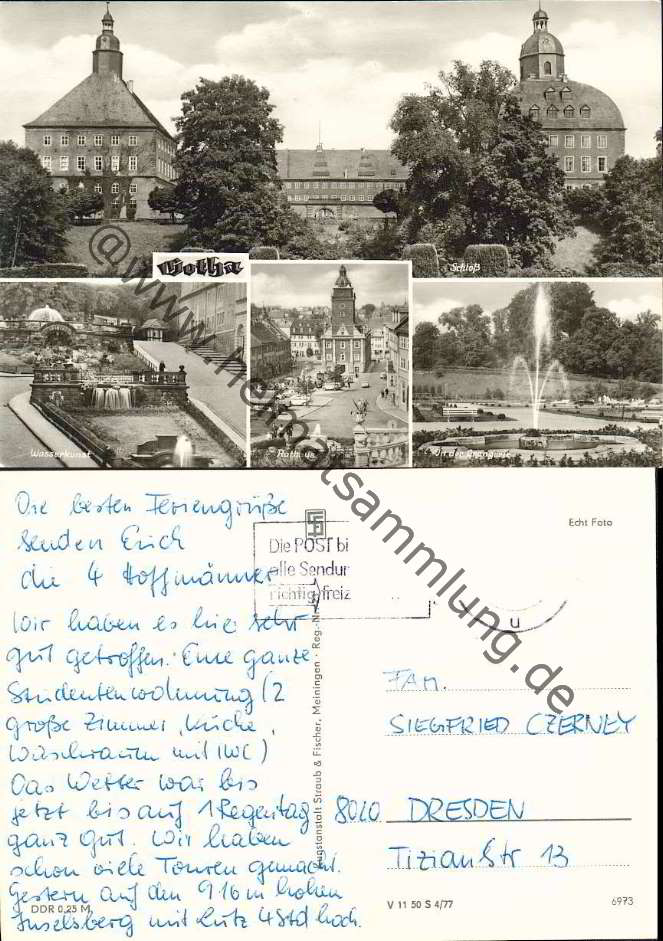 Gotha
Schloß
Wasserkunst
Rathaus
In der Orangerie
@www.heimatsammlung.de
Die besten Feriengrüße
senden Euch
die 4 Hoffmänner
Wir haben es hier sehr
gut getroffen. Eine ganze
Studentenwohnung (2
große Zimmer, Küche,
Waschraum mit WC)
Das Wetter war bis
jetzt bis auf 1 Regentag
ganz gut. Wir haben
schon viele Touren gemacht.
Gestern auf den 916 m hohen
Inselsberg mit Lutz 4 Std hoch.
DDR 0,25 M
Die POST bi
alle Sendun
richtig freiz
Kunstanstalt Straub & Fischer, Meiningen · Reg.-Nr.
Echt Foto
u
FAM.
SIEGFRIED CZERNEY
8020 DRESDEN
Tizianstr 13
V 11 50 S 4/77
6973